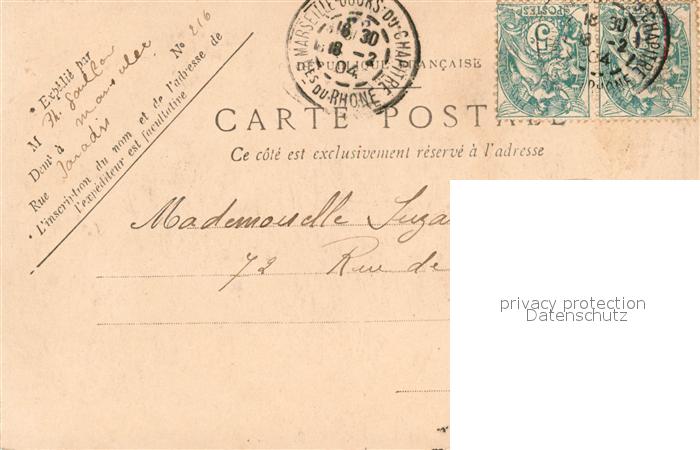 MARSEILLE-COURS-DU-CHAPITRE
18 30
18 -2
04
BES DU RHONE
RÉPUBLIQUE FRANÇAISE
CARTE POSTALE
Ce côté est exclusivement réservé à l'adresse
• Expédié par
M
Domt à Marseille
Rue Paradis No 216
• L'inscription du nom et de l'adresse de
l'expéditeur est facultative
POSTES
Mademoiselle Suza
72 Rue de
privacy protection
Datenschutz